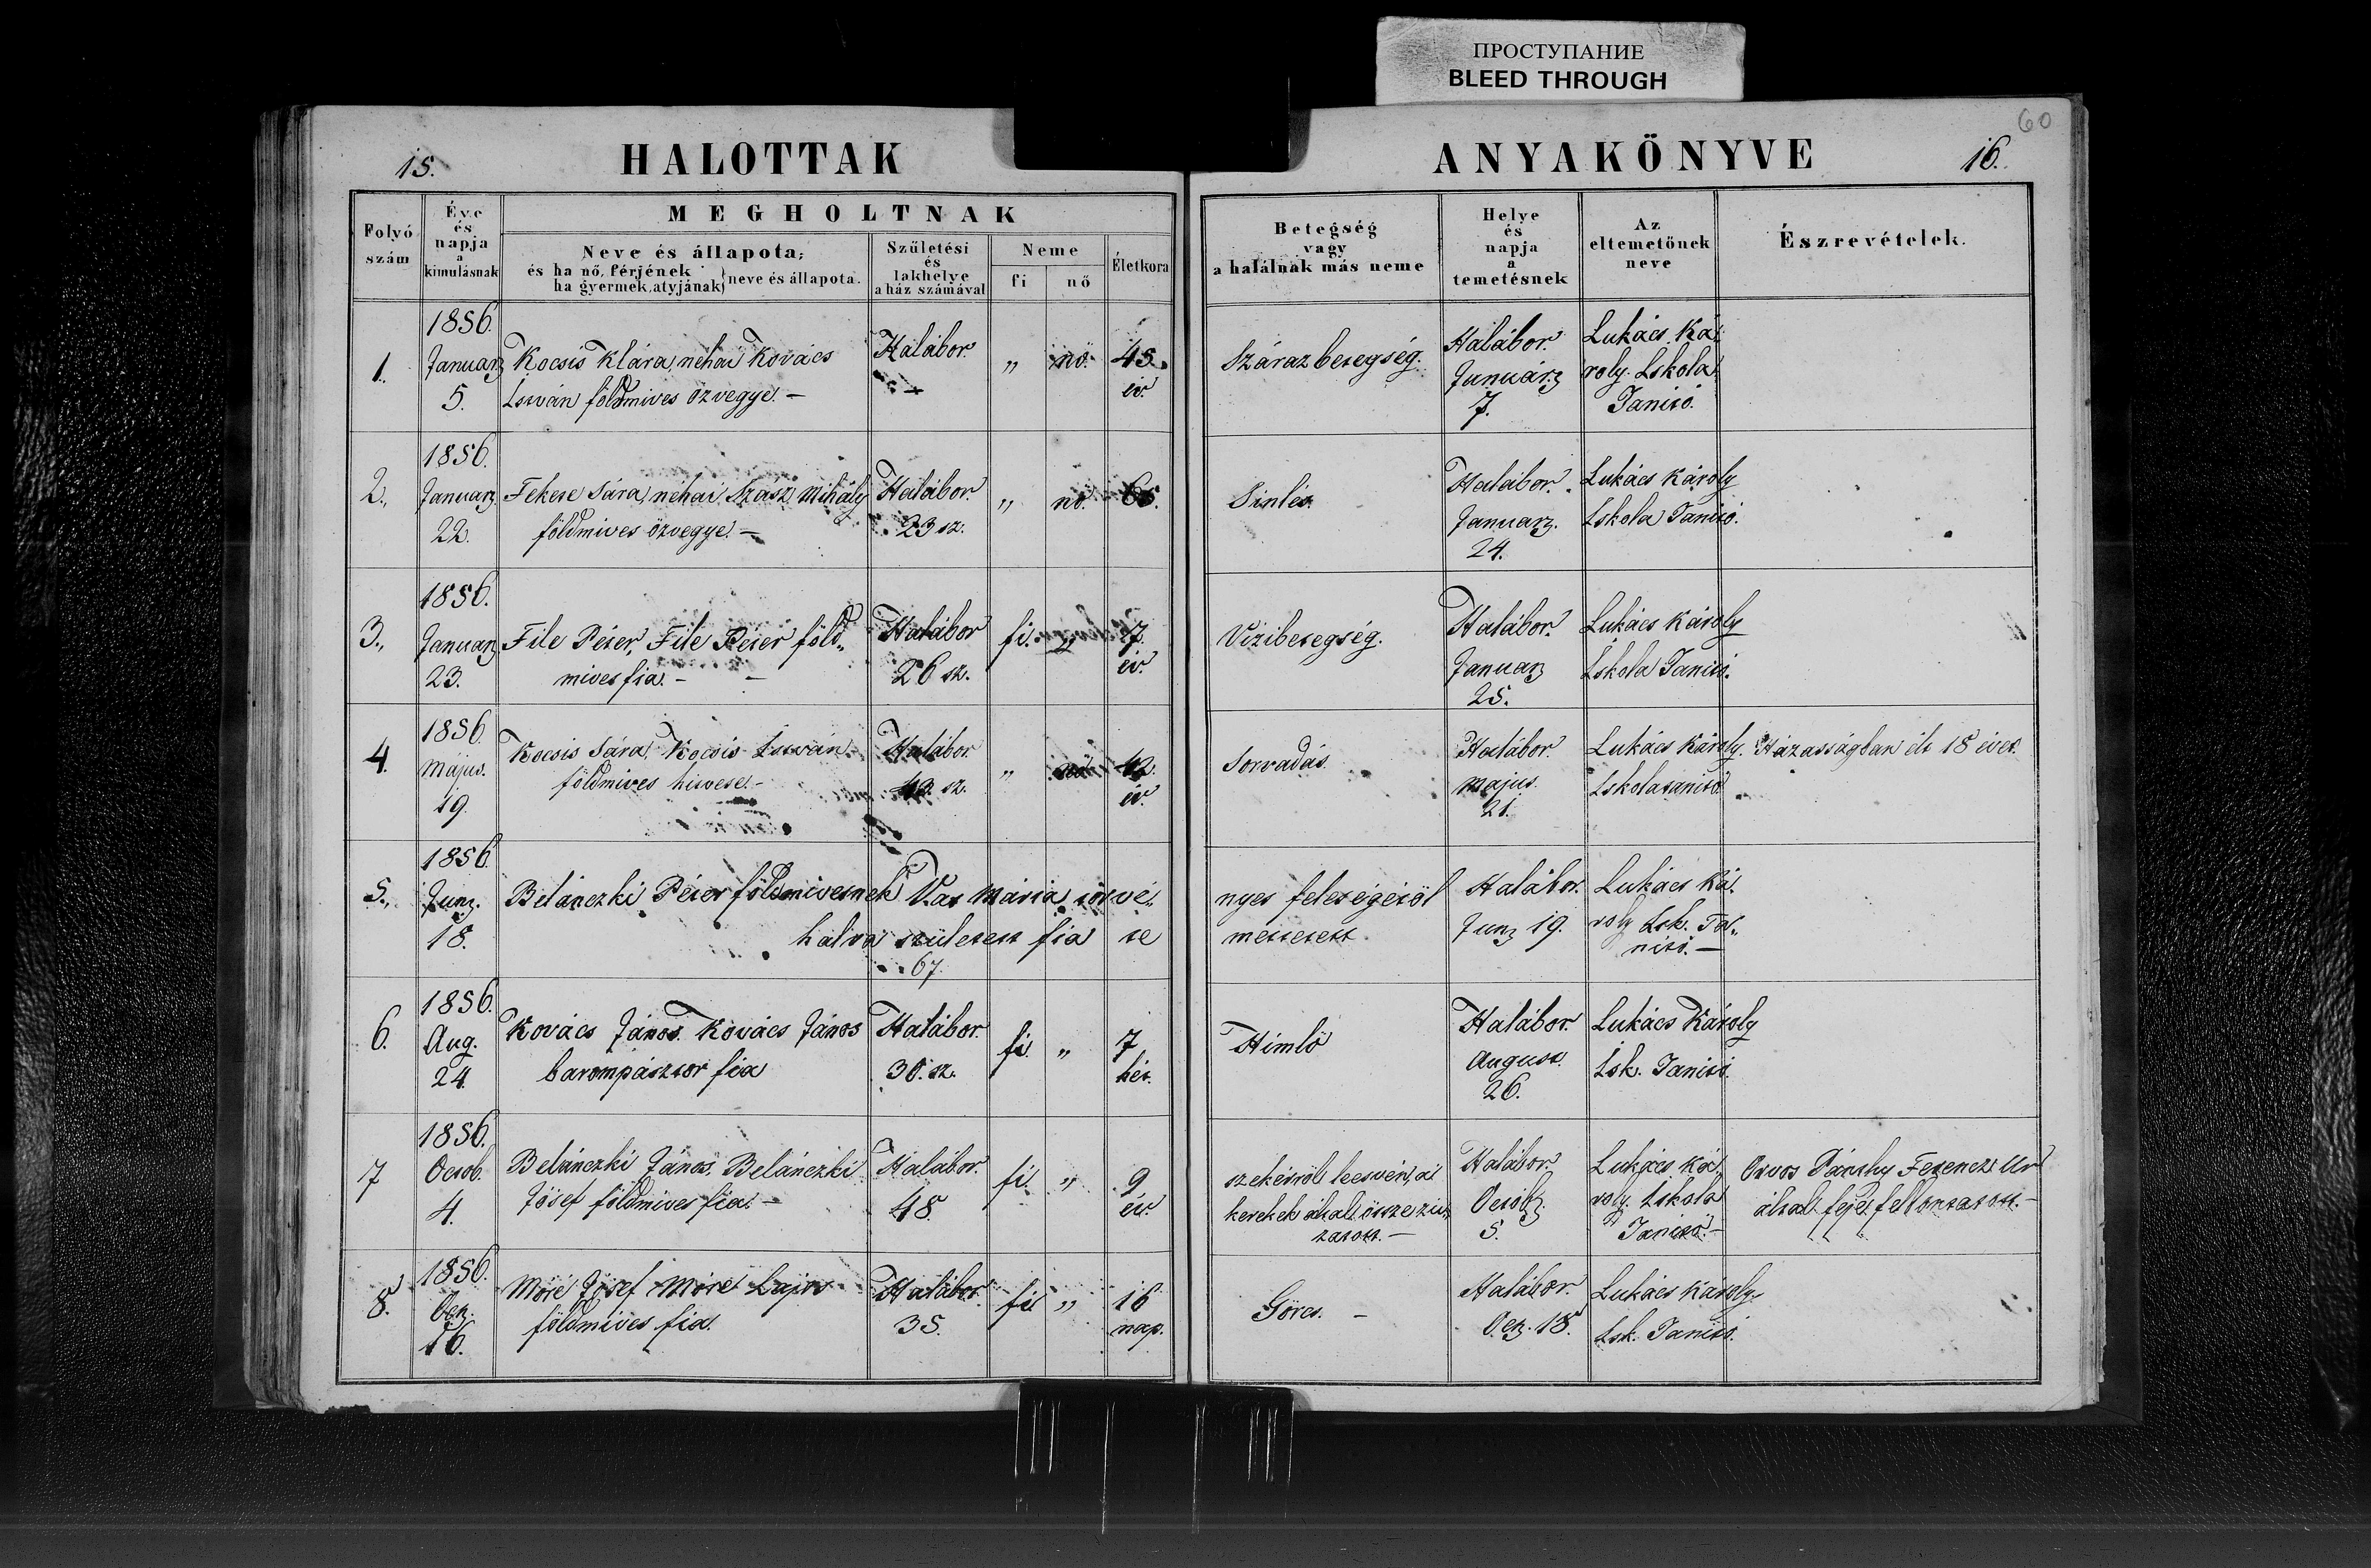 ПРОСТУПАНИЕ
BLEED THROUGH
60
15.
HALOTTAK
ANYAKÖNYVE
16.
Folyó szám
Éve és napja a kimulásnak
MEGHOLTNAK
Neve és állapota,
és ha nő, férjének
ha gyermek, atyjának} neve és állapota.
Születési és lakhelye a ház számával
Neme
fi
nő
Életkora
Betegség vagy a halálnak más neme
Helye és napja a temetésnek
Az eltemetőnek neve
Észrevételek.
1.
1856. Januarz 5.
Kocsis Klára, néhai Kovács
István földmives özvegye. –
Halábor.
„
nő.
45. év.
Száraz betegség.
Halábor. Januárz 7.
Lukács Ká-
roly. Iskola
Tanitó.
2.,
1856. Januarz. 22.
Fekete Sára, néhai Szász Mihály
földmives özvegye. –
Halábor
23 sz.
„
nő.
65.
Sinlés.
Halábor. Januarz. 24.
Lukács Károly
Iskola Tanitó.
3.,
1856. Januarz 23.
File Péter, File Péter föld„
mives fia. –
Halábor
26 sz.
fi.
„
7. év.
Vizibetegség.
Halábor. Januarz 25.
Lukács Károly
Iskola Tanitó.
4.
1856. Május. 19.
Kocsis Sára, Kocsis István
földmives hitvese. –
Halábor.
43. sz.
„
nő
42. év.
Sorvadás.
Halábor. Majus. 21.
Lukács Károly.
Iskolatanitó.
Házasságban élt 18 évet.
5.,
1856. Junz. 18.
Belánczki Péter földmivesnek Vas Mária törvé-
nyes feleségétöl
halva született fia
te
metetett.
67.
Halábor. Junz 19.
Lukács Ká-
roly Isk. Ta„
nitó. –
6.
1856. Aug. 24.
Kovács János. Kovács János
barompásztor fia
Halábor.
30. sz.
fi.
„
7 hét.
Himlő
Halábor. August. 26.
Lukács Károly
Isk. Tanitó.
7
1856. Octob. 4.
Belánczki János. Belánczki
Jósef földmives fia. –
Halábor.
48.
fi.
„
9 év.
szekérröl leesvén, a'
kerekek által össze zúz
zatott. –
Halábor. Octobz. 5.
Lukács Ká-
roly. Iskola
Tanitó. –
Orvos Pánthy Ferencz Ur
által feje felbontatott. –
8.
1856. 16.
Móré Jósef Móré Lajos
földmives fia.
Halábor.
35.
fi
„
16 nap.
Görcs. –
Halábor. 18.
Lukács Károly.
Isk. Tanitó.